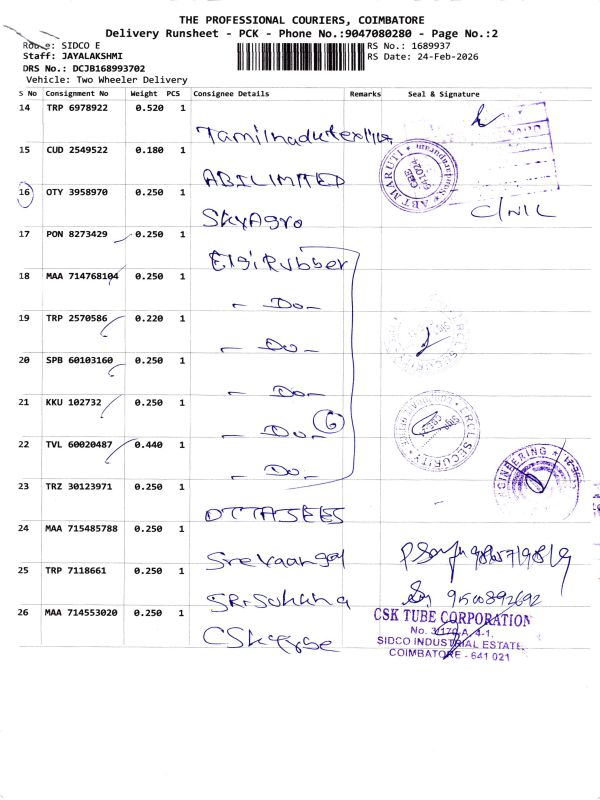 THE PROFESSIONAL COURIERS, COIMBATORE
Delivery Runsheet - PCK - Phone No.:9047080280 - Page No.:2
Route: SIDCO E
RS No.: 1689937
Staff: JAYALAKSHMI
RS Date: 24-Feb-2026
DRS No.: DCJB168993702
Vehicle: Two Wheeler Delivery
S No Consignment No Weight PCS Consignee Details Remarks Seal & Signature
14 TRP 6978922 0.520 1
Tamilnadutextiles
15 CUD 2549522 0.180 1
ABILIMITED
ABT MARUTI
CBE
641024
16 OTY 3958970 0.250 1
SkyAgro
C/NIL
17 PON 8273429 0.250 1
ElgiRubber
18 MAA 714768104 0.250 1
- Do -
19 TRP 2570586 0.220 1
- Do -
20 SPB 60103160 0.250 1
- Do -
21 KKU 102732 0.250 1
- Do -
6
ERCL SECURITY
22 TVL 60020487 0.440 1
- Do -
23 TRZ 30123971 0.250 1
24 MAA 715485788 0.250 1
25 TRP 7118661 0.250 1
SRi Suhana
9500892692
26 MAA 714553020 0.250 1
CSK
CSK TUBE CORPORATION
No. 3/170 A, 4-1,
SIDCO INDUSTRIAL ESTATE,
COIMBATORE - 641 021